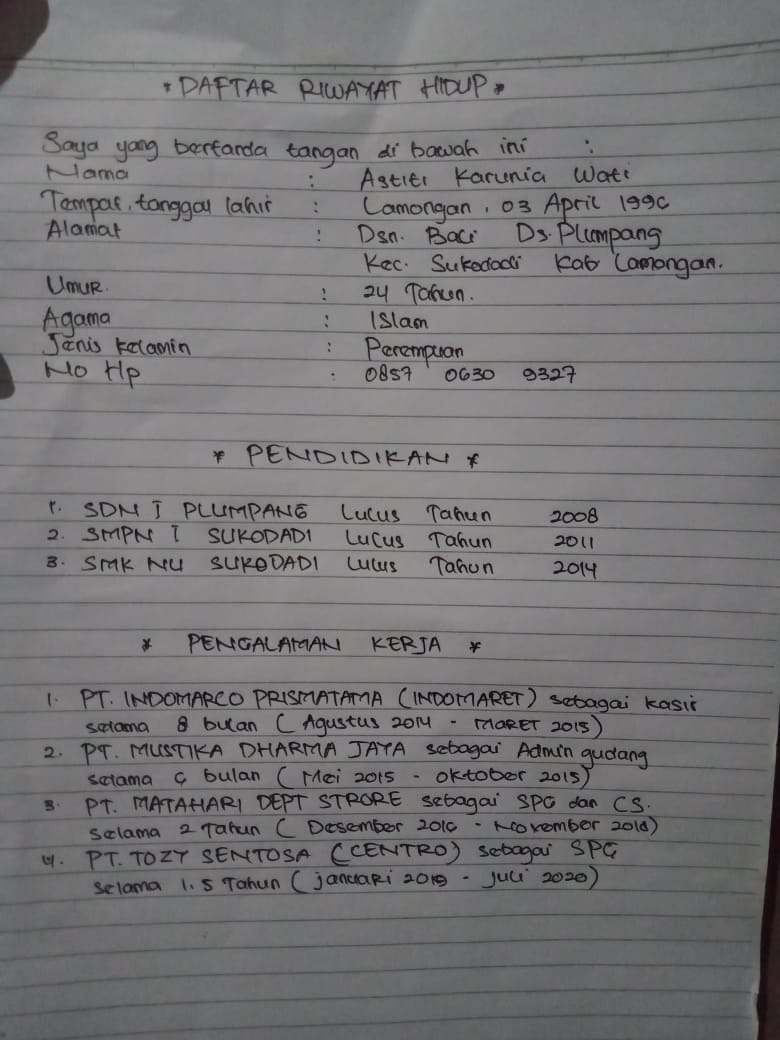 * DAFTAR RIWAYAT HIDUP *
Saya yang bertanda tangan di bawah ini :
Nama : Astiti Karunia Wati
Tempat, tanggal lahir : Lamongan, 03 April 1996
Alamat : Dsn. Baci Ds. Plumpang
Kec. Sukodadi Kab Lamongan.
Umur. : 24 Tahun.
Agama : Islam
Jenis kelamin : Perempuan
No Hp : 0857 0630 9327
* PENDIDIKAN *
1. SDN I PLUMPANG Lulus Tahun 2008
2. SMPN I SUKODADI Lulus Tahun 2011
3. SMK NU SUKODADI Lulus Tahun 2014
* PENGALAMAN KERJA *
1. PT. INDOMARCO PRISMATAMA (INDOMARET) sebagai kasir
selama 8 bulan ( Agustus 2014 - MARET 2015)
2. PT. MUSTIKA DHARMA JAYA sebagai Admin gudang
selama 6 bulan ( Mei 2015 - Oktober 2015)
3. PT. MATAHARI DEPT STRORE sebagai SPG dan CS.
Selama 2 Tahun ( Desember 2016 - November 2018)
4. PT. TOZY SENTOSA (CENTRO) sebagai SPG
Selama 1.5 Tahun ( januari 2019 - Juli 2020)